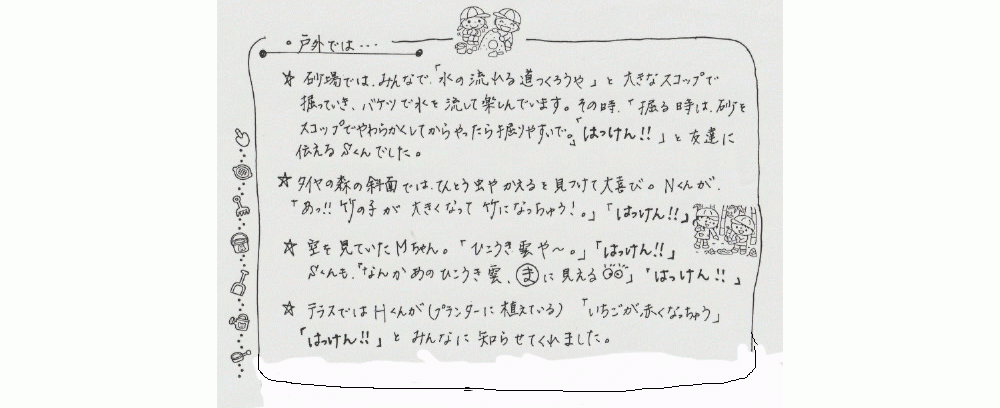 。戸外では・・・
☆ 砂場では、みんなで、「水の流れる道つくろうや」と 大きなスコップで
掘っていき、バケツで水を流して楽しんでいます。その時、「掘る時は、砂を
スコップでやわらかくしてからやったら掘りやすいで。」「はっけん!!」と友達に
伝えるSくんでした。
☆ タイヤの森の斜面では、てんとう虫やかえるを見つけて大喜び。Nくんが、
「あっ!! 竹の子が 大きくなって 竹になっちゅう!。」「はっけん!!」
☆ 空を見ていたMちゃん。「ひこうき雲や~。」「はっけん!!」
Sくんも、「なんか あの ひこうき雲、ま に見える」「はっけん!!」
☆ テラスではHくんが(プランターに植えている)「いちごが、赤くなっちゅう」
「はっけん!!」と みんなに 知らせてくれました。